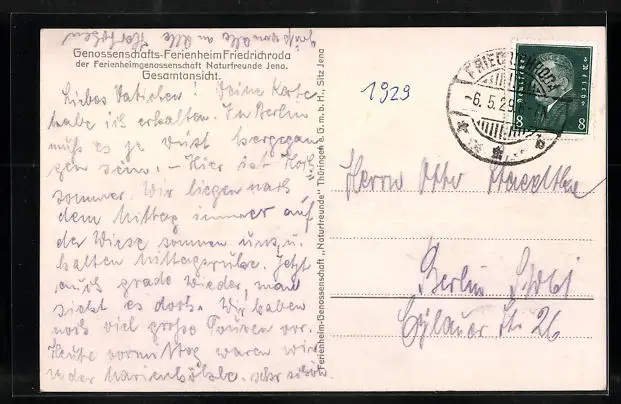 Grüße von alle an alle
Genossenschafts-Ferienheim Friedrichroda
der Ferienheimgenossenschaft Naturfreunde Jena.
Gesamtansicht.
Liebes Vatichen! Deine Karte
habe ich erhalten. In Berlin
muß es ja wüst hergegan
gen sein. - Hier ist Hoch
sommer. Wir liegen nach
dem Mittag immer auf
der Wiese sonnen uns u.
halten Mittagsruhe. Jetzt
grade wieder, man
sieht es doch. Wir haben
noch viel große Touren vor.
Heute vormittag waren wir
in der Marienhöhle. sehr schön.
Ferienheim-Genossenschaft „Naturfreunde" Thüringen e. G. m. b. H., Sitz Jena
1929
FRIEDRICHRODA
-6.5.29
8 8
Herrn Otto
Berlin
Eylauer Str 26